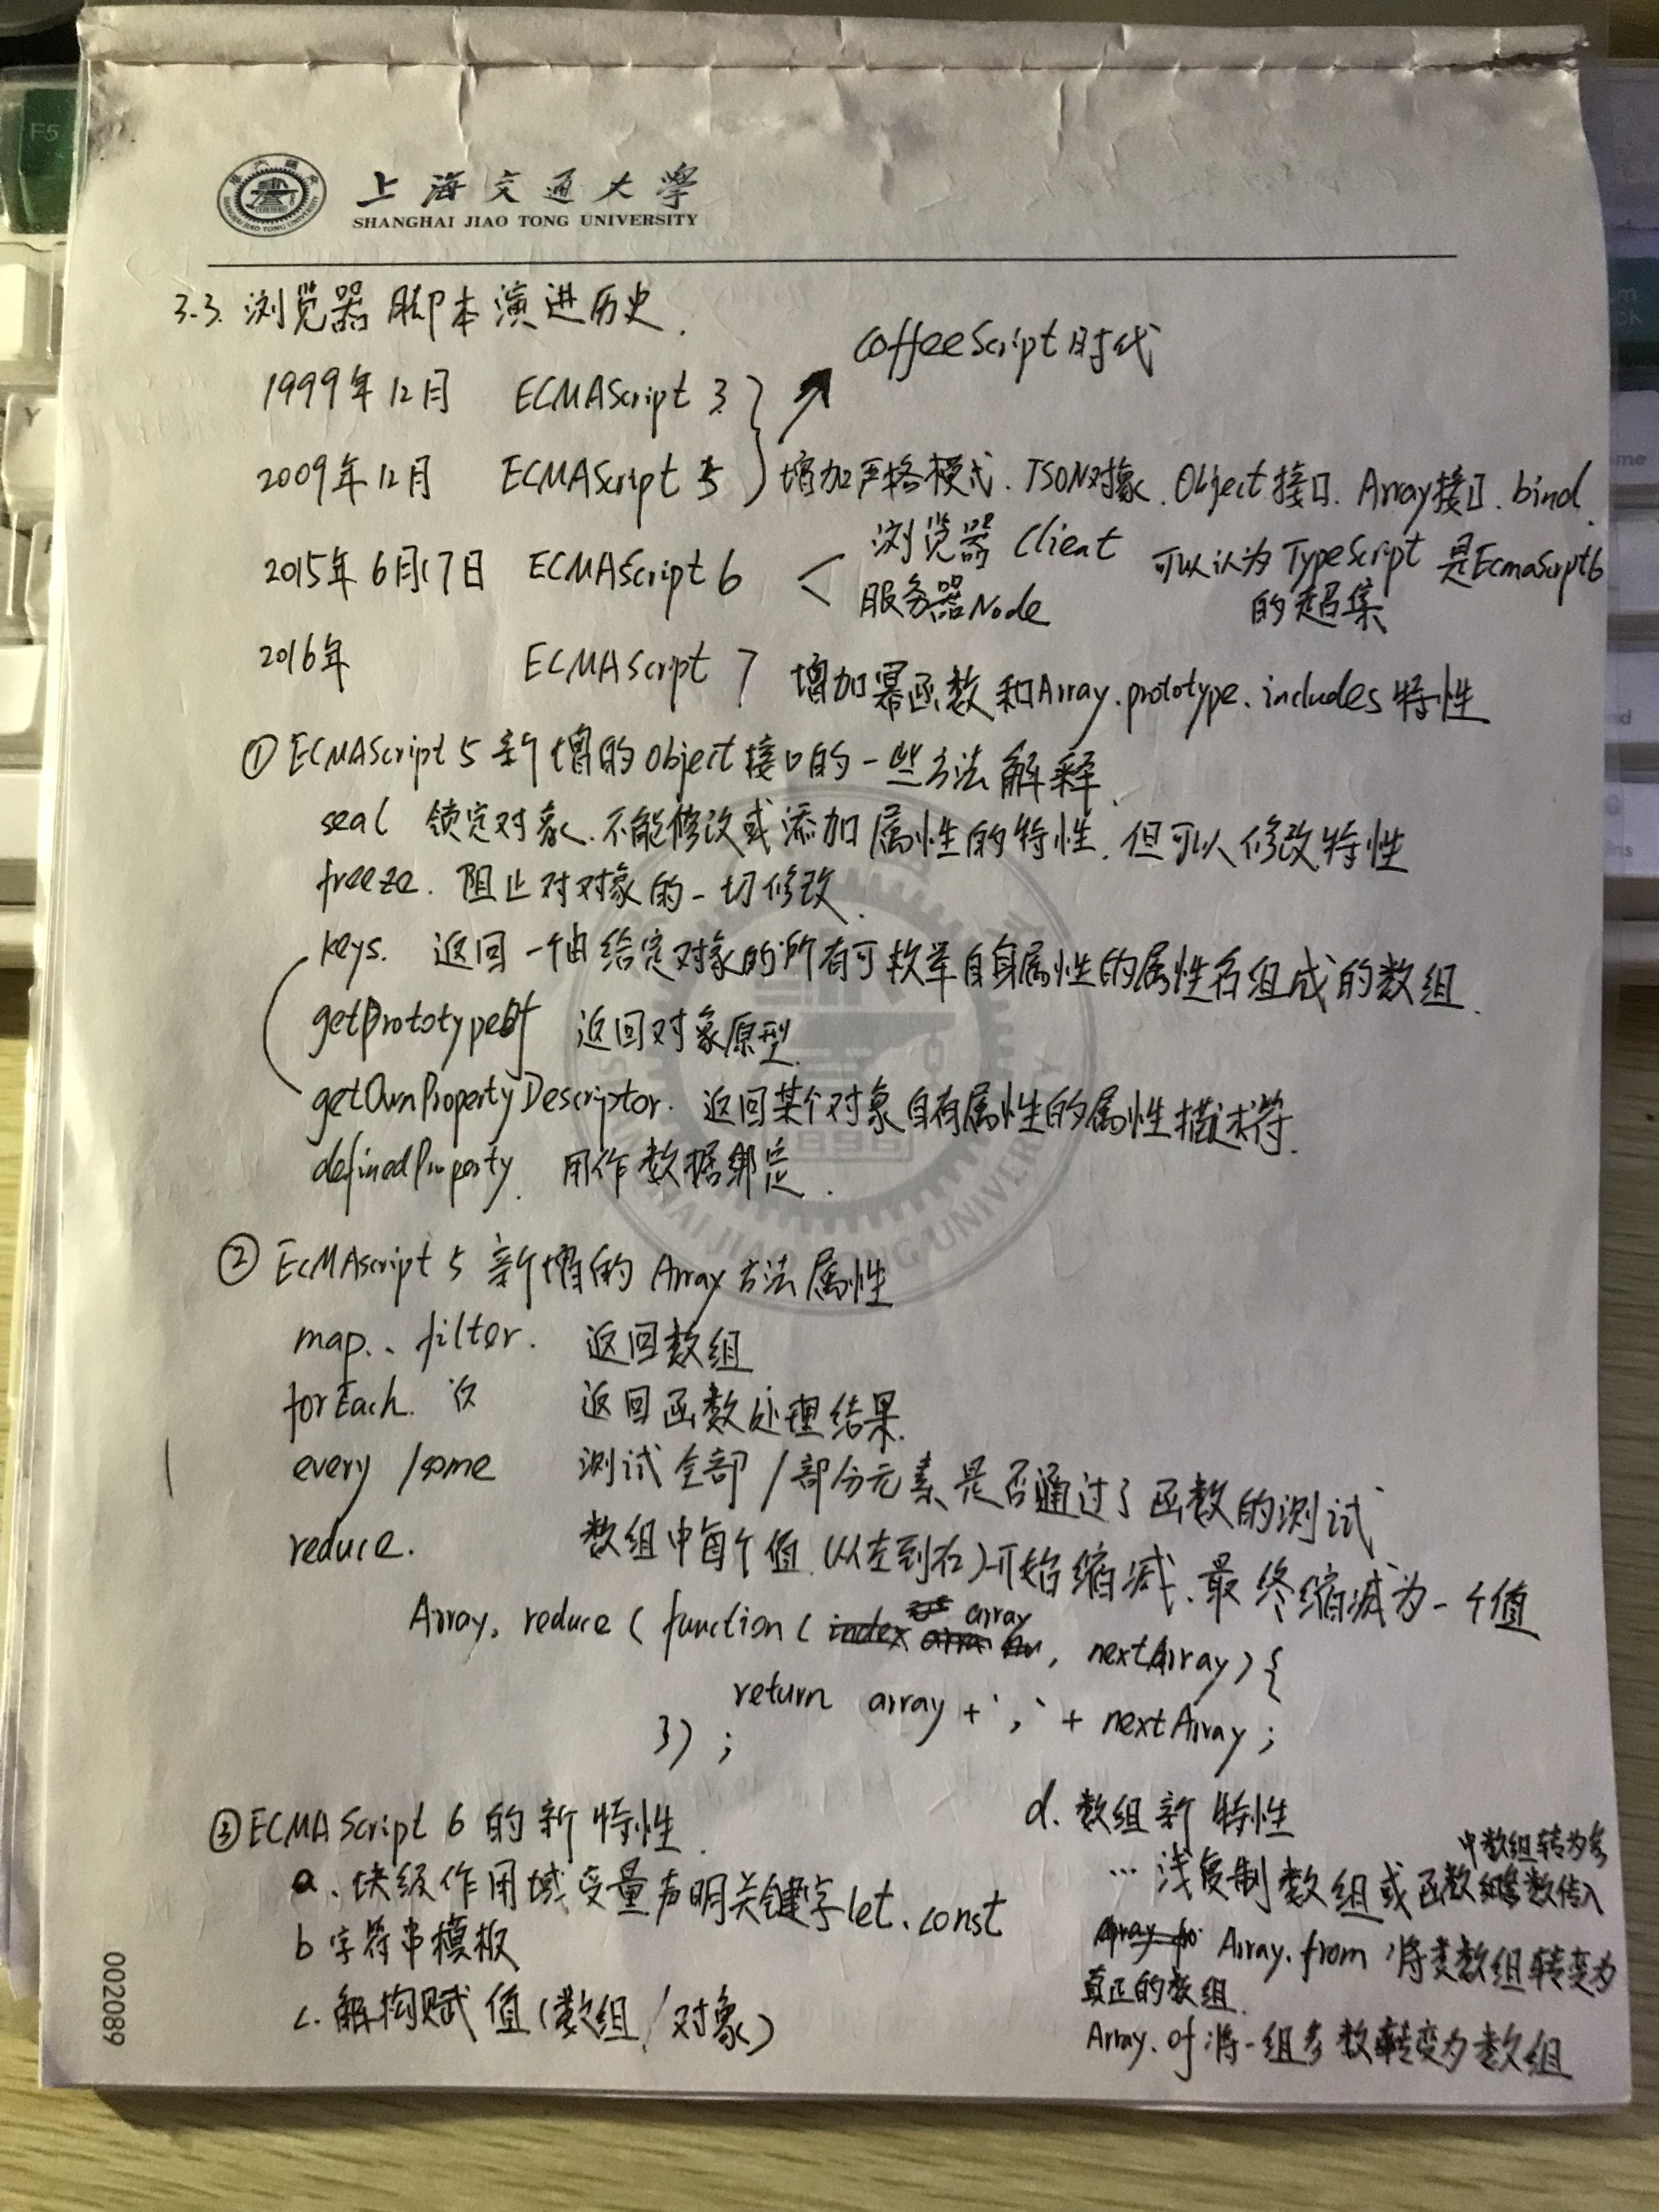 F5
上海交通大學
SHANGHAI JIAO TONG UNIVERSITY
3.3. 浏览器脚本演进历史.
CoffeeScript时代
1999年12月 ECMAScript 3
2009年12月 ECMAScript 5 增加严格模式.JSON对象.Object接口.Array接口.bind.
2015年6月17日 ECMAScript 6 < 浏览器 Client 可以认为TypeScript 是EcmaScript6
服务器Node 的超集
2016年 ECMAScript 7 增加幂函数和Array.prototype.includes特性
① ECMAScript 5 新增的object接口的一些方法解释.
seal 锁定对象.不能修改或添加属性的特性.但可以修改特性
freeze. 阻止对对象的一切修改.
keys. 返回一个由给定对象的所有可枚举自身属性的属性名组成的数组.
getPrototypeOf 返回对象原型.
getOwnPropertyDescriptor. 返回某个对象自有属性的属性描述符.
definedProperty. 用作数据绑定.
② EcMAscript 5 新增的 Array方法属性
map.、filter. 返回数组
forEach. 返回函数处理结果.
every /some 测试全部/部分元素是否通过了函数的测试
reduce. 数组中每个值.(从左到右)开始缩减.最终缩减为一个值
Array. reduce ( function ( index array, nextArray) {
return array + ',' + nextArray ;
}) ;
③ECMAScript 6 的新特性.
a、块级作用域变量声明关键字let、const
b 字符串模板
c. 解构赋值(数组/对象)
d. 数组新特性
中数组转为参
... 浅复制数组或函数数传入
Array.from 将类数组转变为
真正的数组.
Array.of 将一组参数转变为数组
002089
SHANGHAI JIAO TONG UNIVERSITY
1896